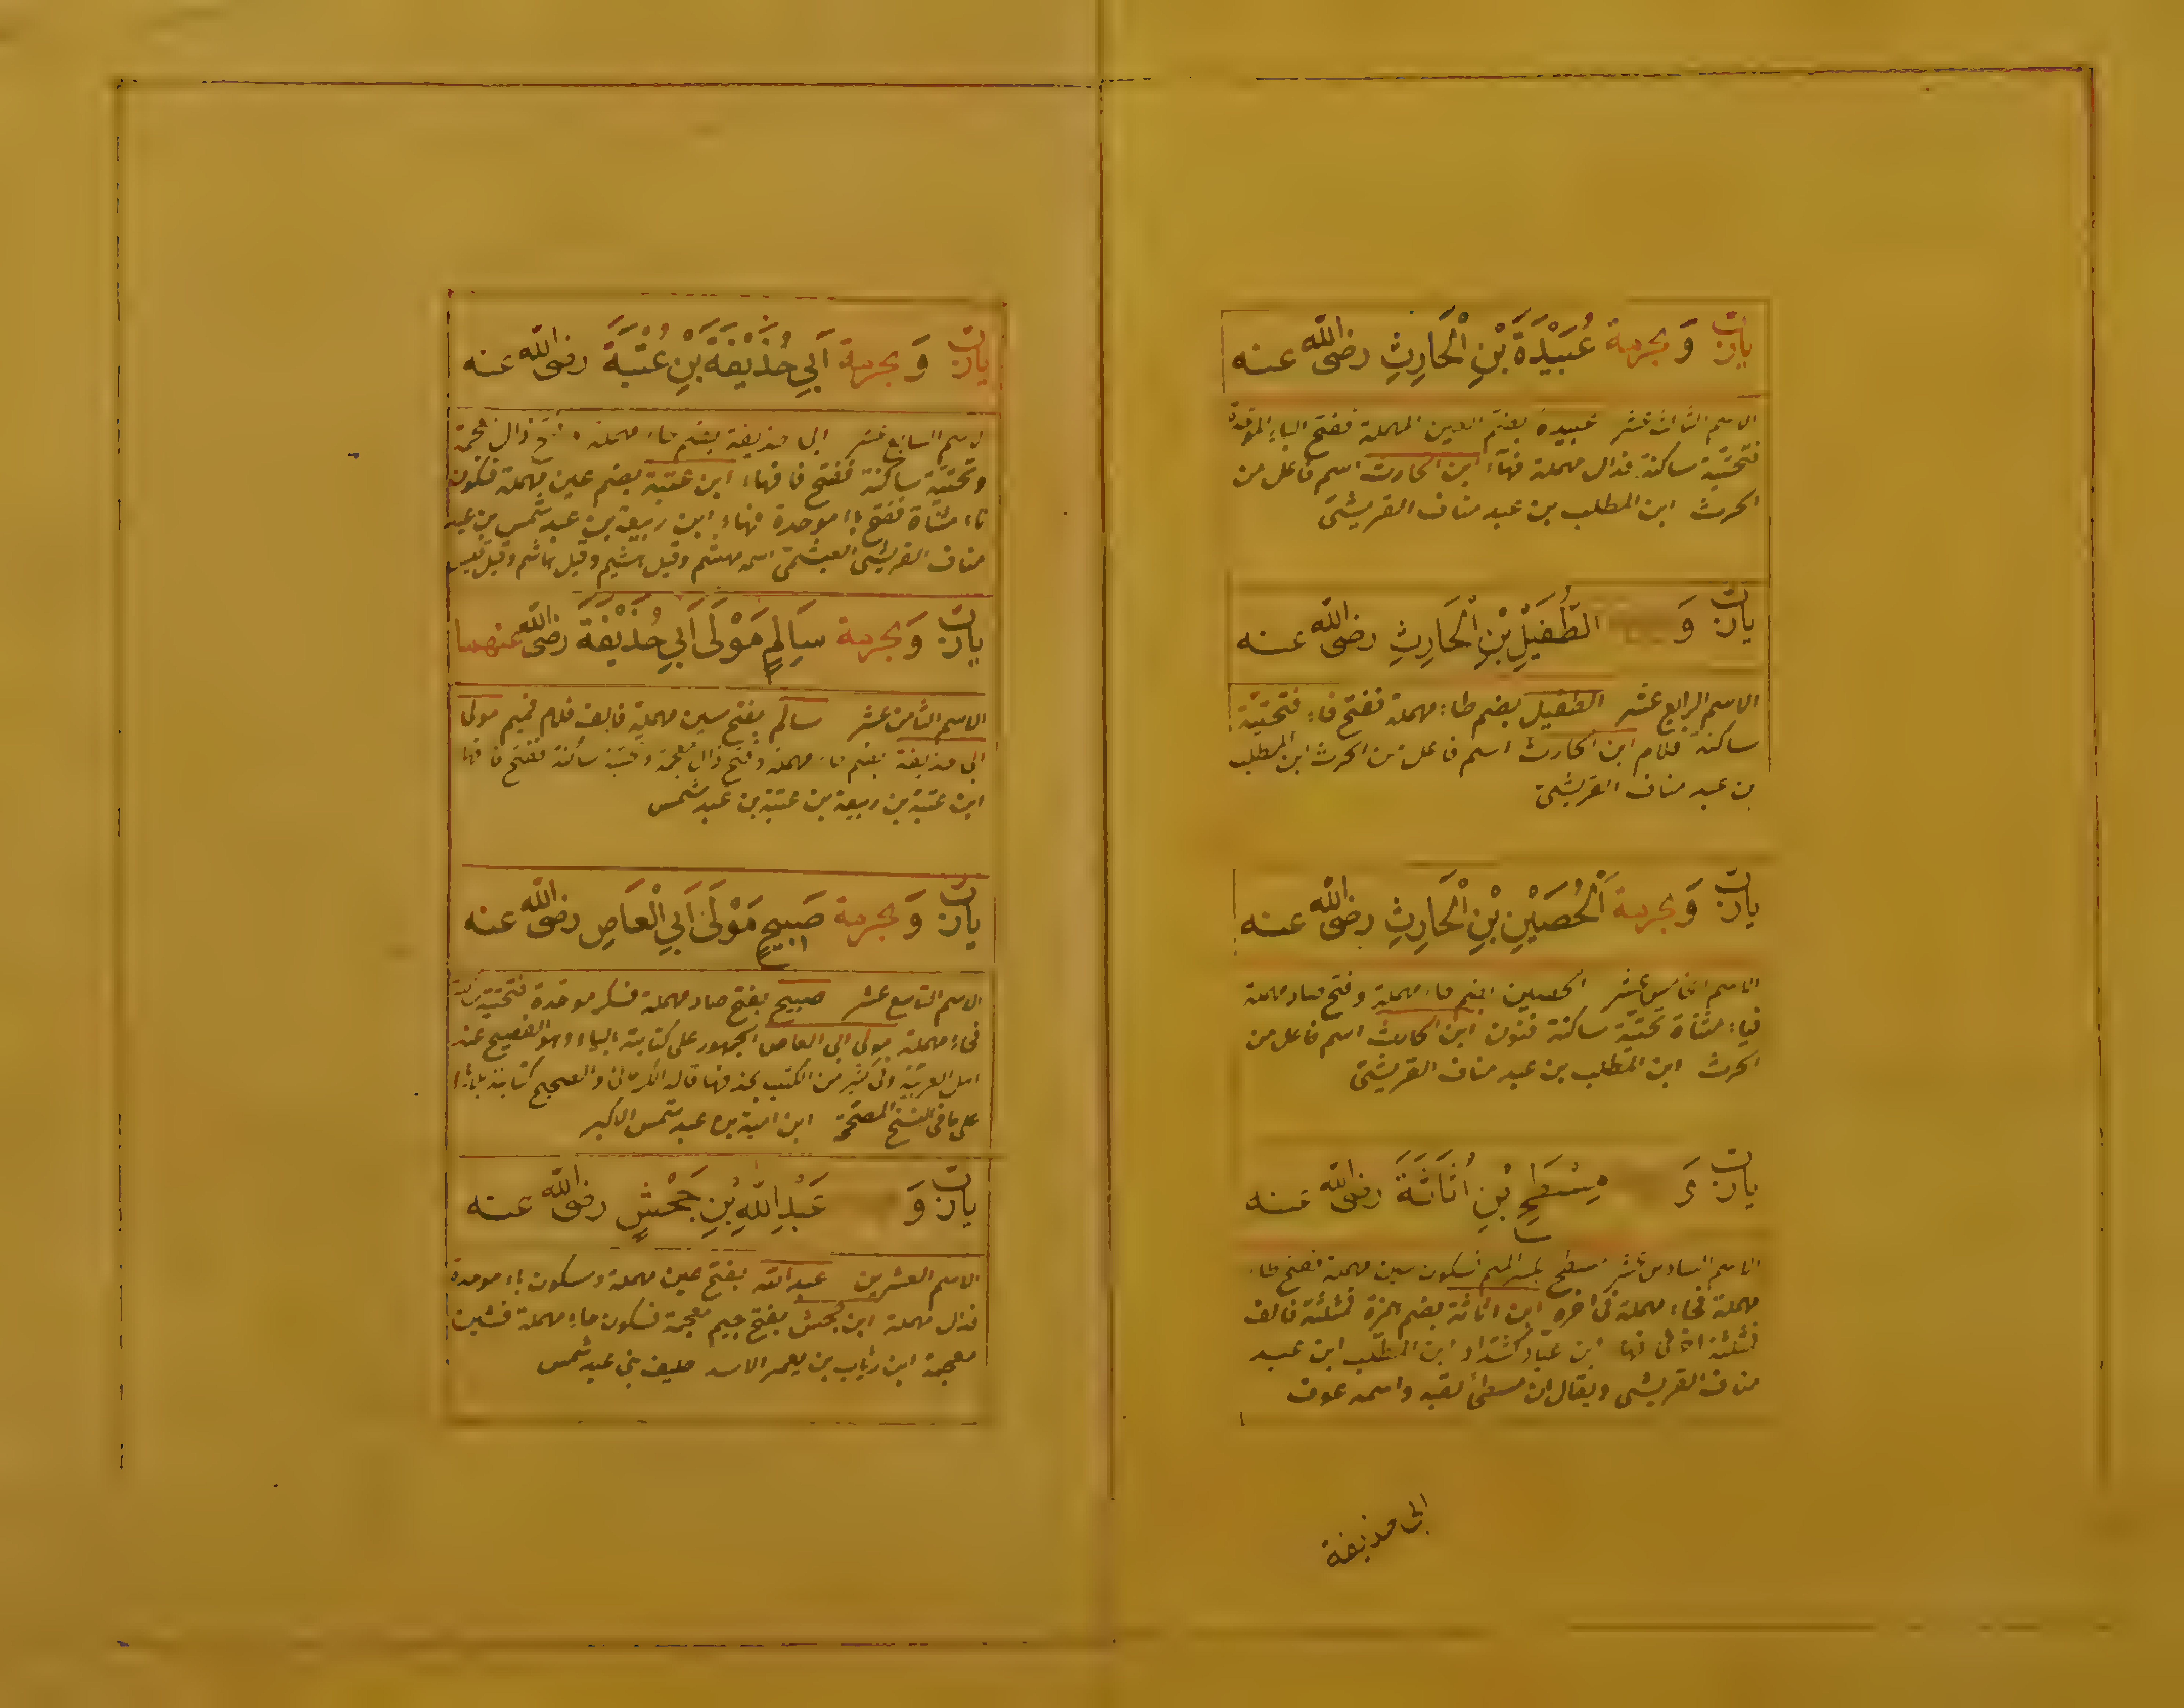 يارب وَبحرمة عُبَيْدَةَ بْنِ الْحَارِثِ رضى الله عنه
الاسم الثالث عشر عبيدة بضم العين المهملة ففتح الباء الموحدة
فتحتية ساكنة فدال مهملة فهآء ابن الحارث اسم فاعل من
الحرث ابن المطلب بن عبد مناف القريشى
يارب وَ الطُّفَيْلِ بْنِ الْحَارِثِ رضى الله عنه
الاسم الرابع عشر الطفيل بضم طاء مهملة ففتح فاء فتحتية
ساكنة فلام ابن الحارث اسم فاعل من الحرث ابن المطلب
بن عبد مناف القريشى
يارب وَبحرمة الْحُصَيْنِ بْنِ الْحَارِثِ رضى الله عنه
الاسم الخامس عشر الحصين بضم حاء مهملة وفتح صاد مهملة
فياء مثناة تحتية ساكنة فنون ابن الحارث اسم فاعل من
الحرث ابن المطلب بن عبد مناف القريشى
يارب وَ مِسْطَحِ بْنِ أُثَاثَةَ رضى الله عنه
الاسم السادس عشر مسطح بكسر الميم فسكون سين مهملة ففتح طاء
مهملة فحاء مهملة فى اخره ابن اثاثة بضم همزة فمثلثة فالف
فمثلثة اخرى فهاء ابن عباد كشداد ابن المطلب ابن عبد
مناف القريشى ويقال ان مسطحا لقبه واسمه عوف
ابى حذيفة
يارب وَبحرمة أَبِي حُذَيْفَةَ بْنِ عُتْبَةَ رضى الله عنه
الاسم السابع عشر ابى حذيفة بضم حاء مهملة وفتح ذال معجمة
وتحتية ساكنة ففتح فا فهاء ابن عتبة بضم عين مهملة فسكون
تاء مثناة ففتح باء موحدة فهاء ابن ربيعة بن عبد شمس بن عبد
مناف القريشى العبشمى اسمه مهشم وقيل هشيم وقيل هاشم وقيل
يارب وَبحرمة سَالِمٍ مَوْلَى أَبِي حُذَيْفَةَ رضى الله عنهما
الاسم الثامن عشر سالم بفتح سين مهملة فالف فلام فميم مولى
ابى حذيفة بضم حاء مهملة وفتح ذال معجمة وتحتية ساكنة ففتح فا فها
ابن عتبة بن ربيعة بن عتبة بن عبد شمس
يارب وَبحرمة صَبِيحٍ مَوْلَى أَبِي الْعَاصِ رضى الله عنه
الاسم التاسع عشر صبيح بفتح صاد مهملة فكسر موحدة فتحتية ساكنة
فحاء مهملة مولى ابى العاص الجمهور على كتابة الياء وهو الفصيح عند
اهل العربية وفى كثير من الكتب بحذفها قاله الكرمانى والصحيح كتابته
على ما فى النسخ المصححة ابن امية بن عبد شمس الاكبر
يارب وَ عَبْدِ اللهِ بْنِ جَحْشٍ رضى الله عنه
الاسم العشرين عبد الله بفتح عين مهملة وسكون باء موحدة
فدال مهملة ابن جحش بفتح جيم معجمة فسكون حاء مهملة فشين
معجمة ابن رئاب بن يعمر الاسد حليف بنى عبد شمس